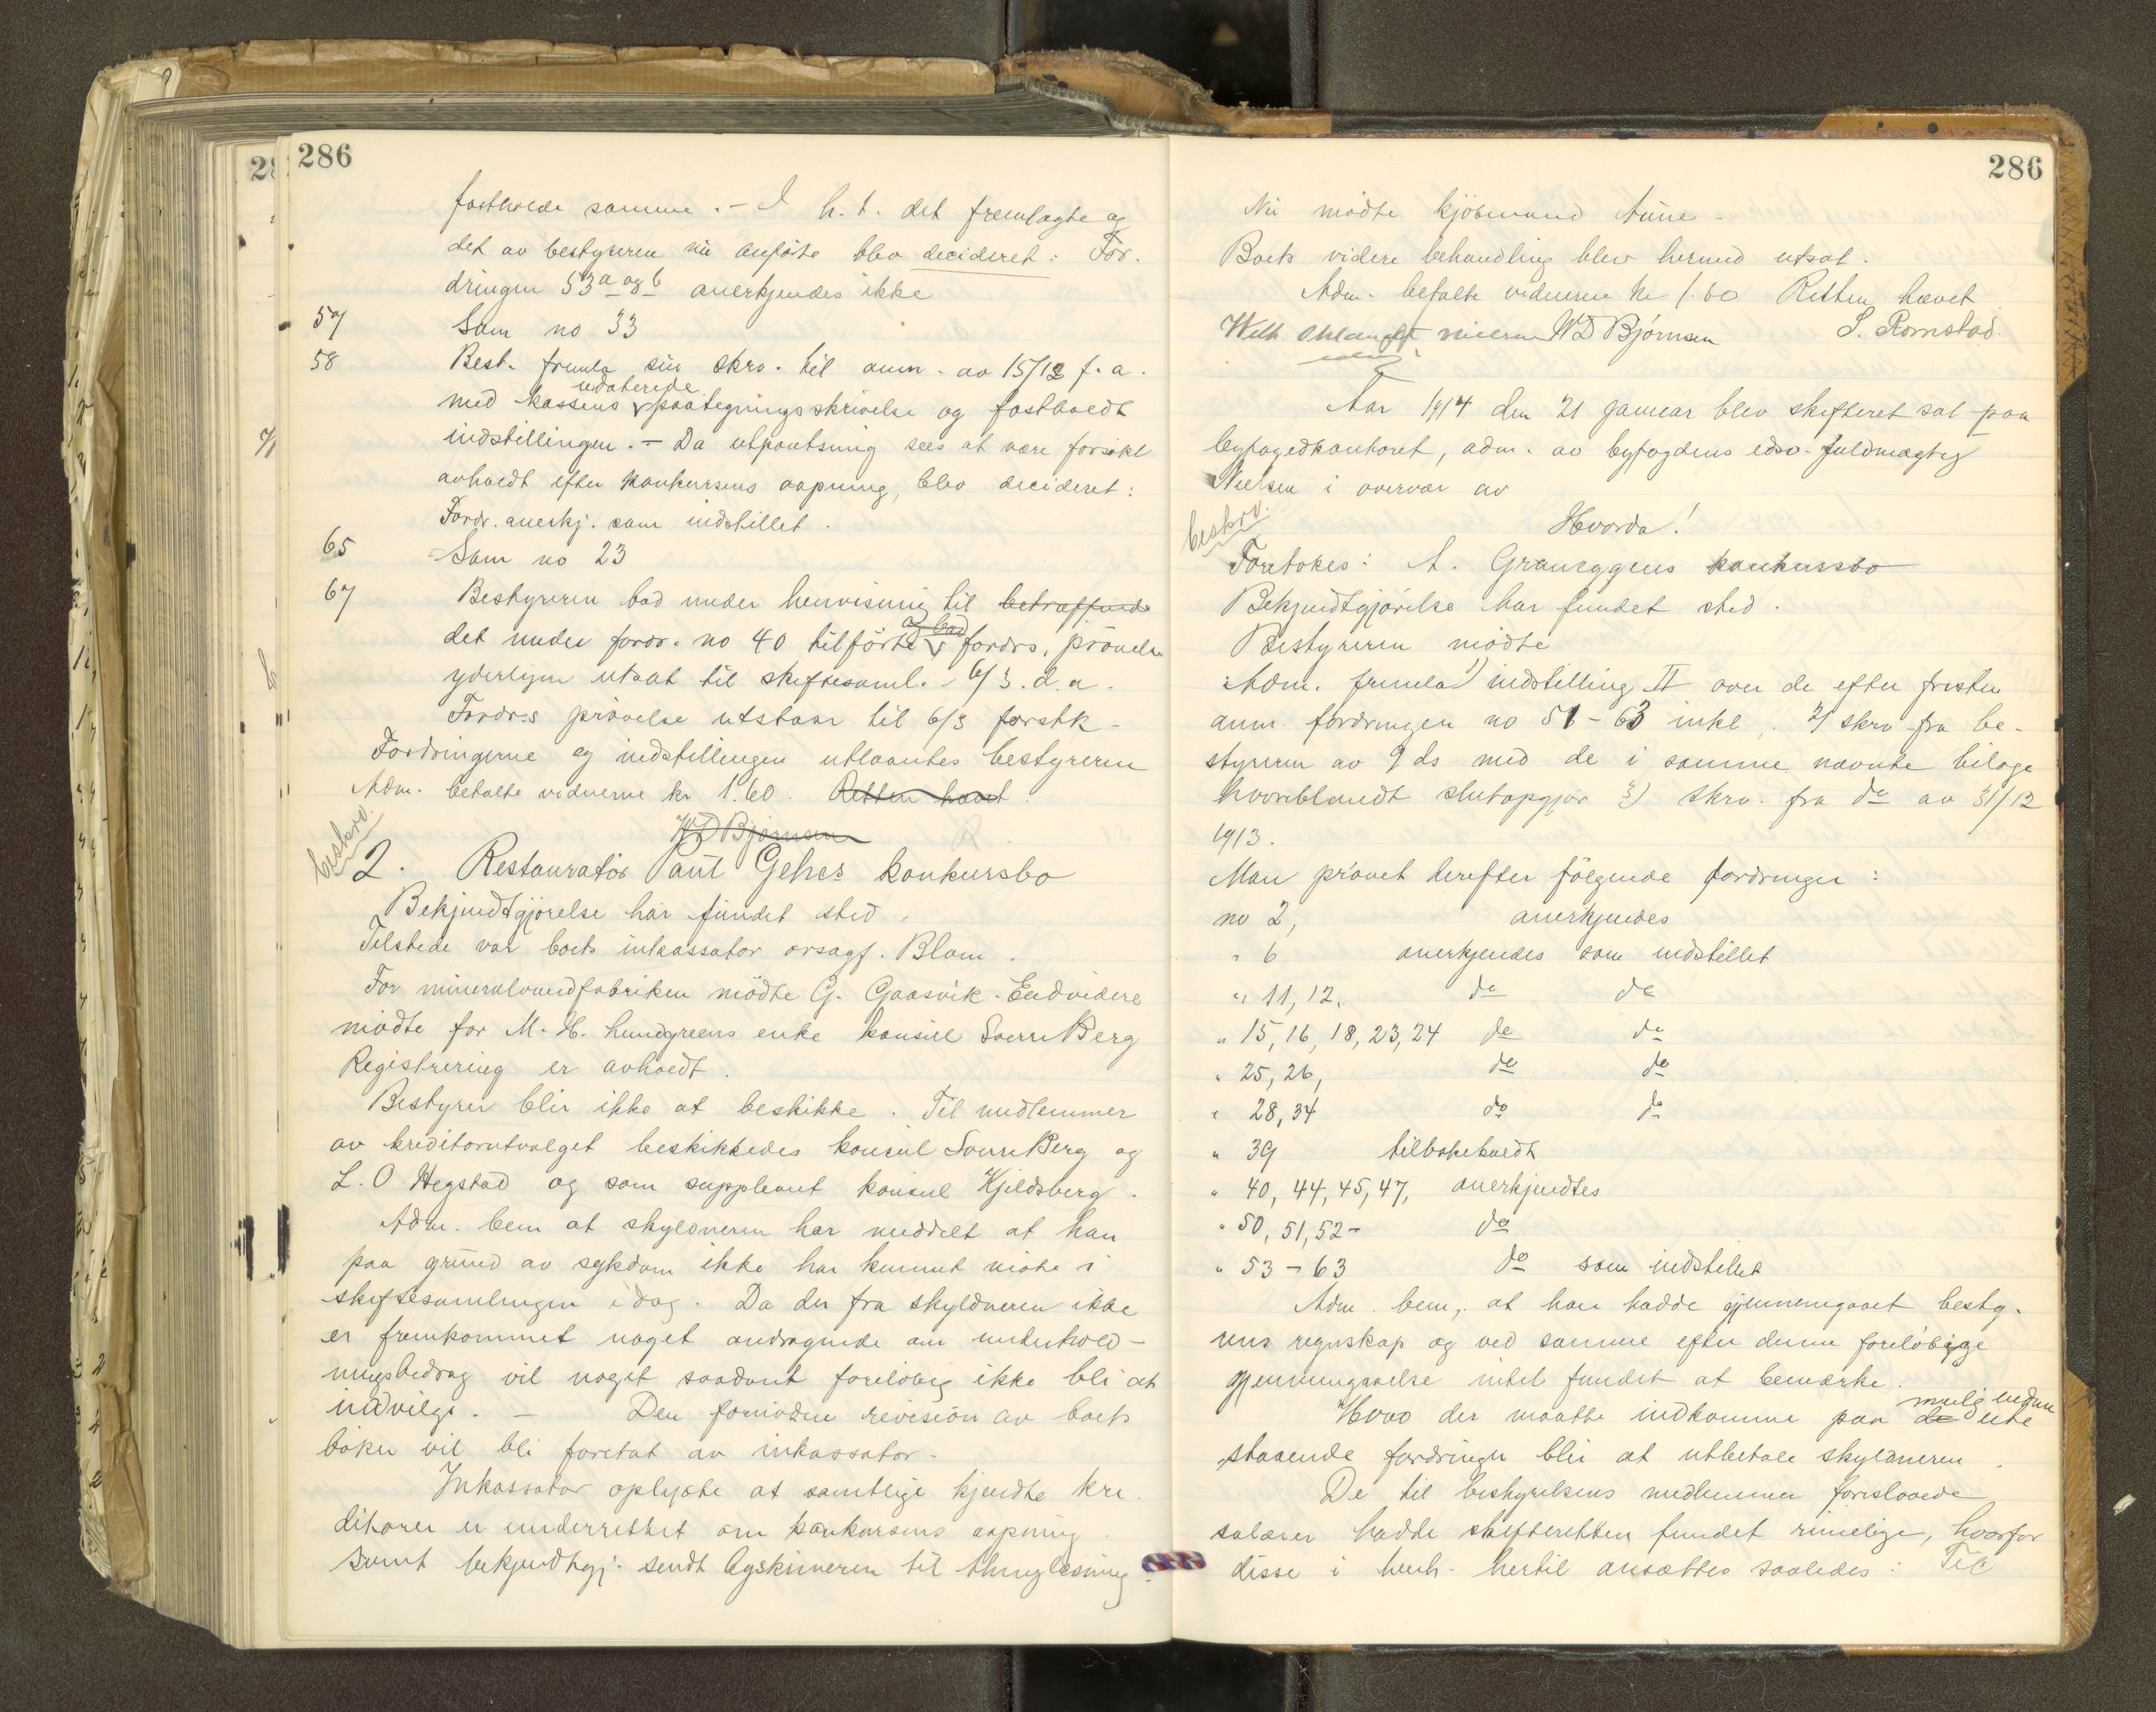 286
fastholde samme. - I h. t. det fremlagte og
det av bestyreren nu anførte blev decideret: For-
dringen 53a og b anerkjendes ikke
57 Som no 33
58 Best. fremla sin skrv. til anm. av 15/12 f. a.
udaterede
med kassens paategningsskrivelse og fastholdt
indstillingen. - Da utpantning sees at være forsøkt
avholdt efter konkursens aapning, blev decideret:
Fordr. anerkj. som indstillet.
65 Som no 23
67 Bestyreren bad under henvisning til betræffende
og bad
det under fordr. no 40 tilførte fordrs. prøvelse
yderligere utsat til skiftesaml. 6/3. d. a.
Fordr-s prøvelse utstaar til 6/3 førstk-
Fordringerne og indstillingen utlaantes bestyreren
Adm. betalte vidnerne kr 1.60. Retten hævet.
WD Bjørnsen
beskrv.
2. Restauratør Paul Gehes konkursbo
Bekjendtgjørelse har fundet sted.
Tilstede var boets inkassator orsagf. Blom.
For mineralvandfabriken mødte G. Gaasvik. Endvidere
mødte for M. H. Lundgreens enke konsul Sverre Berg
Registrering er avholdt.
Bestyrer blir ikke at beskikke. Til medlemmer
av kreditorutvalget beskikkedes konsul Sverre Berg og
L. O Hegstad og som suppleant konsul Kjeldsberg.
Adm. bem at skyldneren har meddelt at han
paa grund av sykdom ikke har kunnet møte i
skiftesamlingen idag. Da der fra skyldneren ikke
er fremkommet noget andragende om underhold-
ningsbidrag vil noget saadant foreløbig ikke bli at
indvilge. - Den fornødne revision av boets
bøker vil bli foretat av inkassator-
Inkassator oplyste at samtlige kjendte kre-
ditorer er underrettet om konkursens aapning
samt bekjendtgj. sendt byskriveren til thinglæsning.
286
Nu mødte kjøbmand Aune-
Boets videre behandling blev hermed utsat.
Adm. betalte vidnerne kr 1.60 Retten hævet
Nielsen WD Bjørnsen S. Romstad.
Aar 1914 den 21 januar blev skifteret sat paa
byfogedkontoret, adm. av byfogdens edsv. fuldmægtig
Nielsen i overvær av
beskrv. Hvorda!
Foretokes: A. Graneggens konkursbo
Bekjendtgjørelse har fundet sted.
Bestyreren mødte
Adm. fremla 1) indstilling II over de efter fristen
anm. fordringer no 51-63 inkl., 2) skrv fra be-
styreren av 9 ds med de i samme nævnte bilage
hvoriblandt slutopgjør 3) skrv. fra do av 31/12
1913.
Man prøvet derefter følgende fordringer:
no 2, anerkjendes
" 6 anerkjendes som indstillet
" 11, 12. do do
" 15, 16, 18, 23, 24 do do
" 25, 26, do do
" 28, 34 do do
" 39 tilbakeholdt
" 40, 44, 45, 47, anerkjendtes
" 50, 51, 52- do
" 53-63 do som indstillet
Adm. bem., at han hadde gjennemgaaet besty-
rens regnskap og ved samme efter denne foreløbige
gjennemgaaelse intet fundet at bemærke.
mulig endnu
Hvad der maatte indkomme paa de ute
staaende fordringer blir at utbetale skyldneren.
De til bestyrelsens medlemmer foreslaaede
salærer hadde skifteretten fundet rimelige, hvorfor
disse i henh. hertil ansættes saaledes: Til